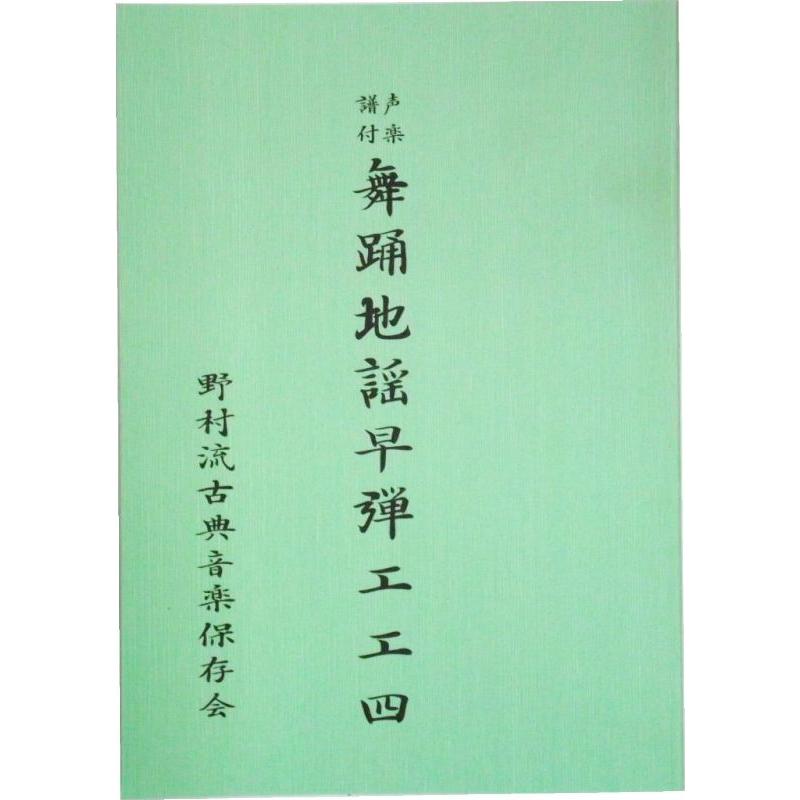 声楽
譜付
舞踊地謡早弾工工四
野村流古典音楽保存会